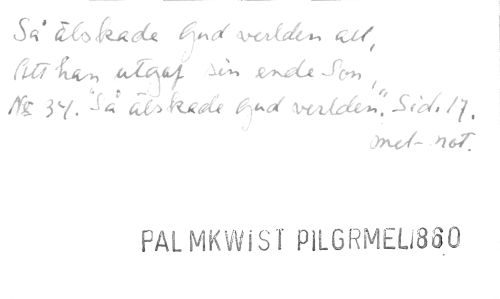 Så älskade Gud verlden all,
Att han utgaf sin ende Son,
No 34. "Så älskade Gud verlden". Sid. 17.
mel-not.
PALMKWIST PILGRMEL1860